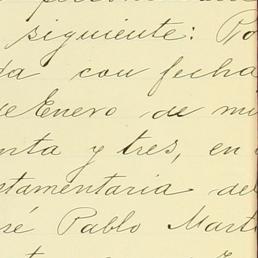 siguiente: Po
da con fecha
de Enero de mi
nta y tres, en
stamentaria del
ré Pablo Mart